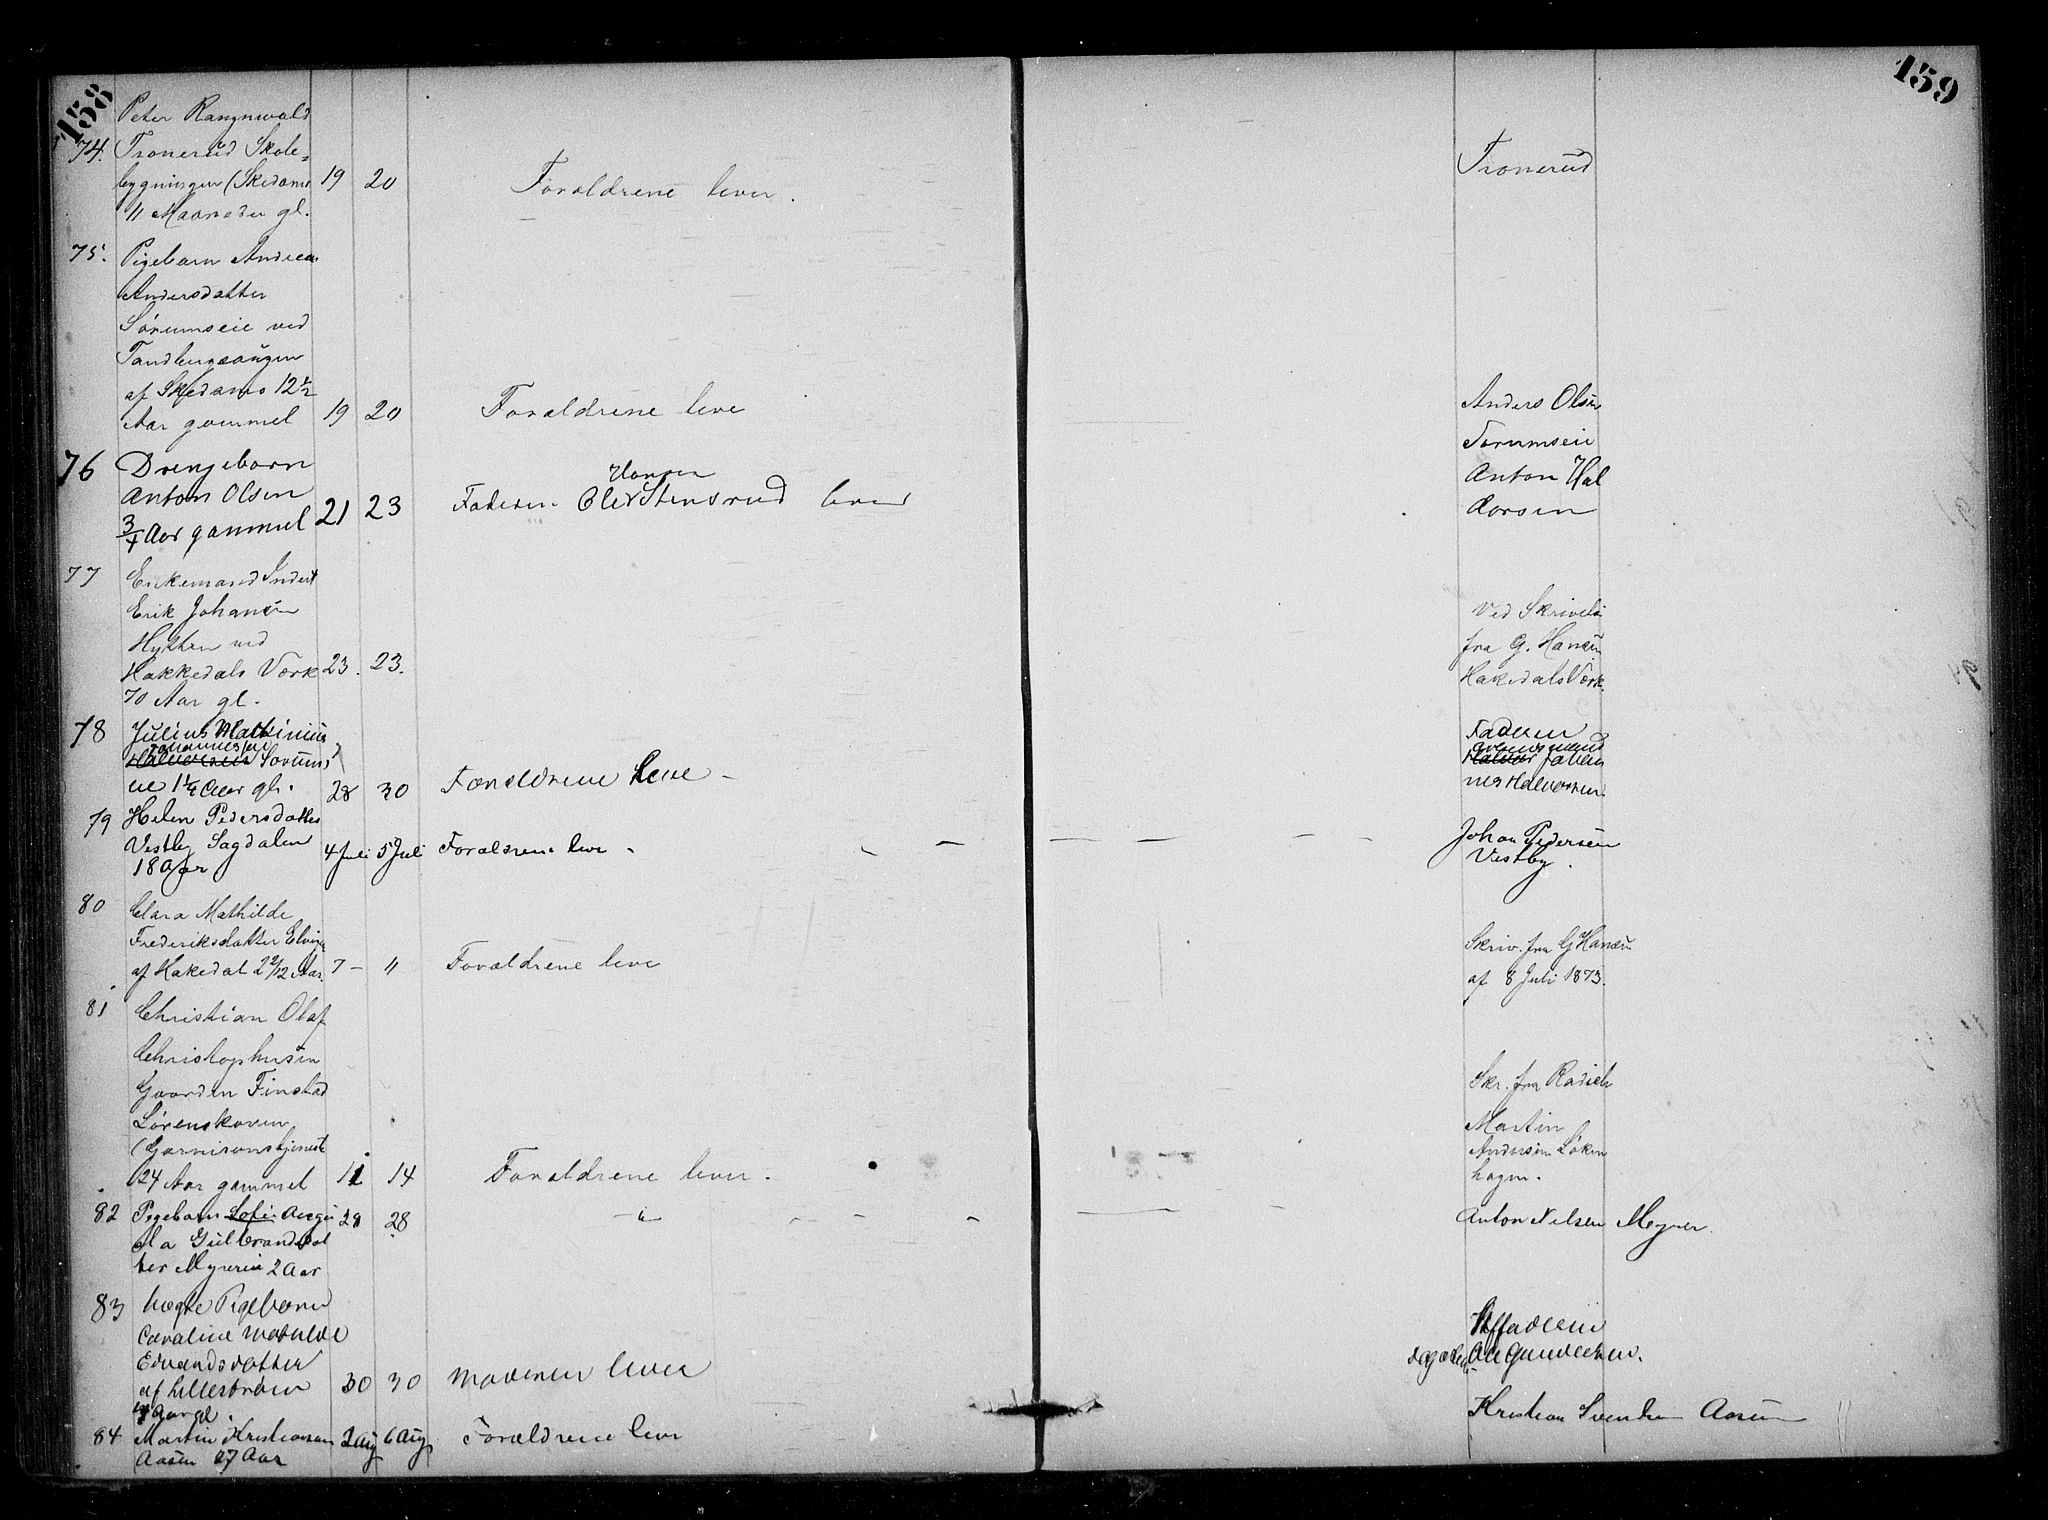 158
Peter Rangnwald
74. Tronerud Skole=
bygningen (Skedsmo 19 20 Forældrene lever.
11 Maaneder gl.
75. Pigebarn Andrea
Andersdatter
Sørumseie ved
Tandbergsaugen
af Skedsmo 12½
Aar gammel 19 20 Forældrene leve
76 Drengebarn
Anton Olsen 21 23 Faderen Ole Hansen Stensrud lever
3/4 Aar gammel
77 Enkemand Inderst
Erik Johansen
Hytten ved
Hakkedals Værk 23. 23.
70 Aar gl.
78 Julius
Johannesen
Halvorsen Sørums
eie 1¼ Aar gl. 28 30 Forældrene leve
79 Helen Pedersdatter
Vestby Sagdalen 4 Juli 5 Juli Forældrene leve
18 Aar
80 Clara Mathilde
Frederiksdatter
af Hakedal 2 2/12 Aar. 7 — " Forældrene leve
81 Christian Olaf
Christophersen
Gaarden Finstad
Lørenskoven
(Garnisonstjeneste
24 Aar gammel 11 14 Forældrene lever.
82 Pigebarn Sofie Augu 28 28 — " —
sta Gulbrandsdat
ter Myrerie 2 Aar
83 Pigebarn
Caroline Mathilde
Edvardsdatter
af Lillestrøm 30 30 Moderen lever
84 Martin Kristiansen 2 Aug 6 Aug Forældrene leve
Aasen 27 Aar
159
Tronerud
Anders Olsen
Sørumseie
Anton Hal
vorsen
Ved Skrivelse
fra G. Hansen
Hakedals Værk.
Faderen
Halvor Johan
nes Halvorsen.
Johan Pedersen
Vestby.
Skriv. fra G Hansen
af 8 Juli 1873.
Skr. fra Radich
Martin
Andersen Løken
hagen.
Anton Nilsen Myrer.
Af faderen
Kristian Svendsen Aasen